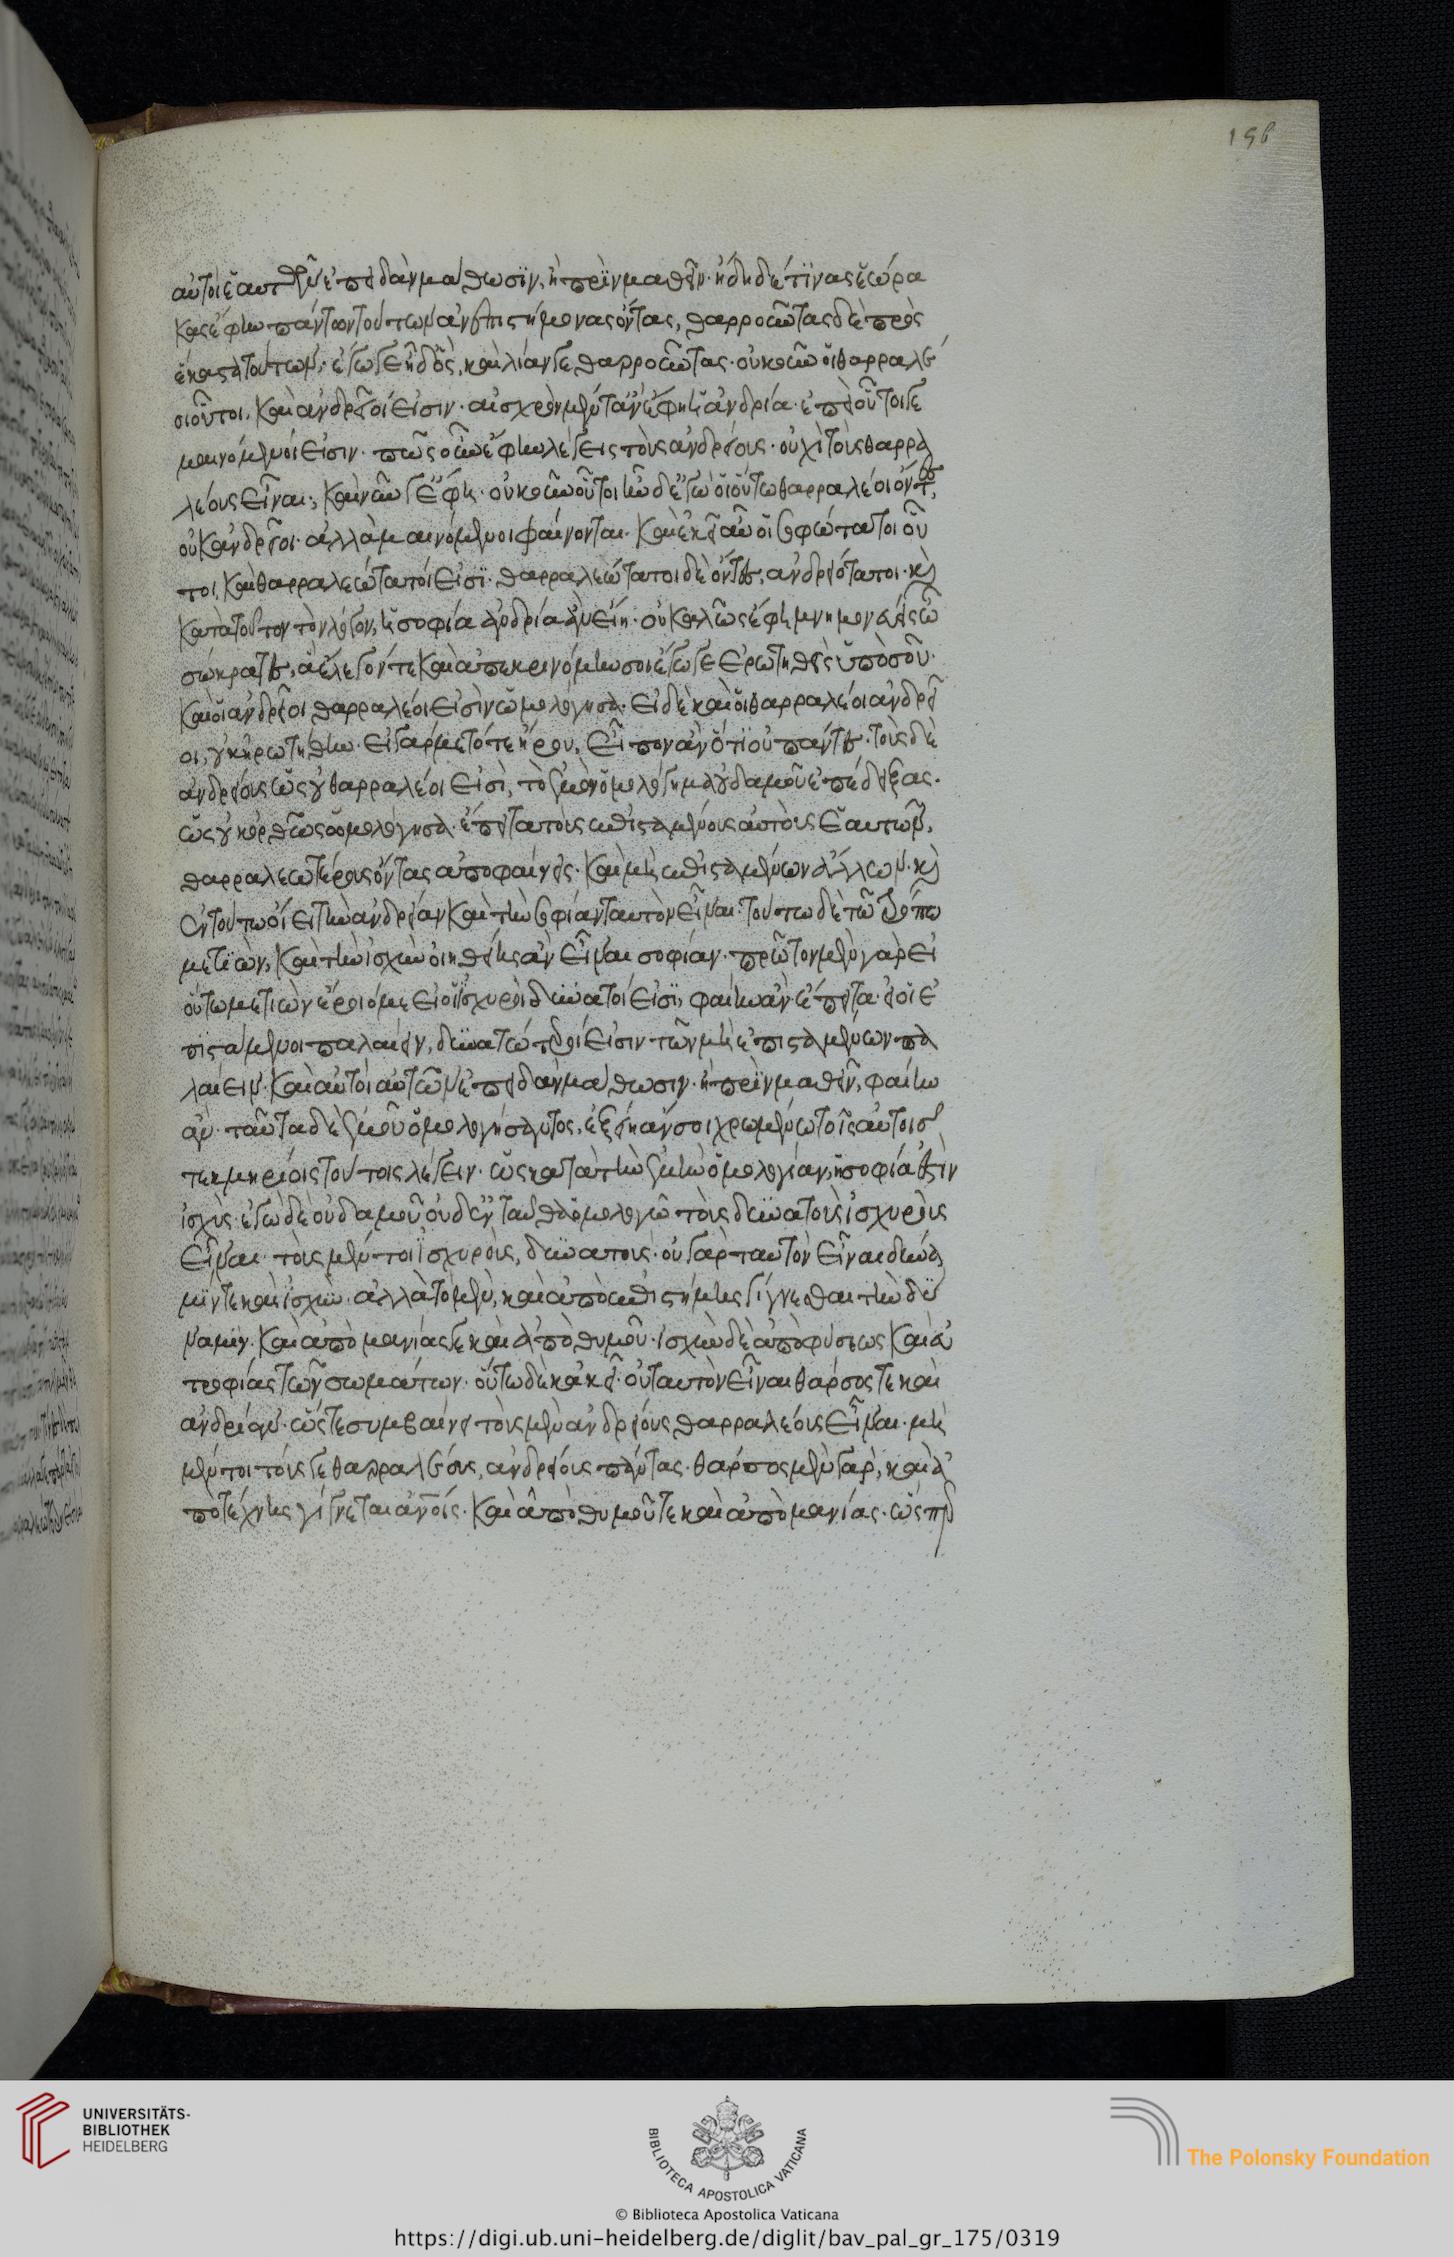 156
αὐτοὶ ἑαυτῶν ἐπειδὰν μάθωσιν, ἢ πρὶν μαθεῖν· ἤδη δέ τινας ἑώρα
κας ἔφην πάντων τούτων ἀνεπιστήμονας ὄντας, θαρροῦντας δὲ πρὸς
ἕκαστα τούτων· ἐγώ γε ἦ δ' ὃς, καὶ λίαν γε θαρροῦντας· οὐκοῦν οἱ θαρραλέ
οι οὗτοι, καὶ ἀνδρεῖοί εἰσιν· αἰσχρὸν μέντ' ἂν ἔφη ἡ ἀνδρία· ἐπεὶ οὗτοί γε
μαινόμενοί εἰσιν· πῶς οὖν ἔφην λέγεις τοὺς ἀνδρείους· οὐχὶ τοὺς θαρρα
λέους εἶναι; καὶ νῦν γε ἔφη· οὐκοῦν οὗτοι ἦν δ' ἐγὼ οἱ οὕτω θαρραλέοι ὄντες,
οὐκ ἀνδρεῖοι· ἀλλὰ μαινόμενοι φαίνονται· καὶ ἐκεῖ αὖ οἱ σοφώτατοι οὗ
τοι, καὶ θαρραλεώτατοί εἰσι· θαρραλεώτατοι δὲ ὄντες, ἀνδρειότατοι· καὶ
κατὰ τοῦτον τὸν λόγον, ἡ σοφία ἀνδρία ἂν εἴη· οὐ καλῶς ἔφη μνημονεύεις ὦ
σώκρατες, ἃ ἔλεγόν τε καὶ ἀπεκρινόμην σοι· ἐγώ γε ἐρωτηθεὶς ὑπὸ σοῦ·
καὶ οἱ ἀνδρεῖοι θαρραλέοι εἰσὶν ὡμολόγησα· εἰ δὲ καὶ οἱ θαρραλέοι ἀνδρεῖ
οι, οὐκ ἠρωτήθην· εἰ γάρ με τότε ἤρου, εἶπον ἂν ὅτι οὐ πάντες· τοὺς δὲ
ἀνδρείους ὡς οὐ θαρραλέοι εἰσὶ, τὸ ἐμὸν ὁμολόγημα οὐδαμοῦ ἐπέδειξας·
ὡς οὐκ ὀρθῶς ὡμολόγησα· ἔπειτα τοὺς ἐπισταμένους αὐτοὺς ἑαυτῶν,
θαρραλεωτέρους ὄντας ἀποφαίνεις· καὶ μὴ ἐπισταμένων ἄλλων· καὶ
ἐν τούτῳ οἴει τὴν ἀνδρείαν καὶ τὴν σοφίαν ταυτὸν εἶναι· τούτῳ δὲ τῷ τρόπῳ
μετιὼν, καὶ τὴν ἰσχὺν οἰηθείης ἂν εἶναι σοφίαν· πρῶτον μὲν γὰρ εἰ
οὕτω μετιὼν ἔροιό με εἰ οἱ ἰσχυροὶ δυνατοί εἰσι, φαίην ἄν· ἔπειτα· εἰ οἱ ἐ
πιστάμενοι παλαίειν, δυνατώτεροί εἰσιν τῶν μὴ ἐπισταμένων πα
λαίειν· καὶ αὐτοὶ αὑτῶν ἐπειδὰν μάθωσιν· ἢ πρὶν μαθεῖν, φαίην
ἄν· ταῦτα δὲ ἐμοῦ ὁμολογήσαντος, ἐξείη ἄν σοι χρωμένῳ τοῖς αὐτοῖς
τεκμηρίοις τούτοις λέγειν· ὡς κατὰ τὴν ἐμὴν ὁμολογίαν, ἡ σοφία ἐστὶν
ἰσχύς· ἐγὼ δὲ οὐδαμοῦ οὐδ' ἐνταῦθα ὁμολογῶ τοὺς δυνατοὺς ἰσχυροὺς
εἶναι· τοὺς μέντοι ἰσχυροὺς, δυνατούς· οὐ γὰρ ταυτὸν εἶναι δύνα
μίν τε καὶ ἰσχύν· ἀλλὰ τὸ μὲν, καὶ ἀπὸ ἐπιστήμης γίγνεσθαι τὴν δύ
ναμιν· καὶ ἀπὸ μανίας γε καὶ ἀπὸ θυμοῦ· ἰσχὺν δὲ ἀπὸ φύσεως καὶ εὐ
τροφίας τῶν σωμάτων· οὕτω δὲ κἀκεῖ· οὐ ταυτὸν εἶναι θάρσος τε καὶ
ἀνδρείαν· ὥστε συμβαίνει τοὺς μὲν ἀνδρείους θαρραλέους εἶναι· μὴ
μέντοι τούς γε θαρραλέους, ἀνδρείους πάντας· θάρσος μὲν γὰρ, καὶ ἀ
πὸ τέχνης γίγνεται ἀνθρώποις· καὶ ἀπὸ θυμοῦ τε καὶ ἀπὸ μανίας· ὥσπερ
UNIVERSITÄTS-
BIBLIOTHEK
HEIDELBERG
BIBLIOTECA APOSTOLICA VATICANA
The Polonsky Foundation
© Biblioteca Apostolica Vaticana
https://digi.ub.uni-heidelberg.de/diglit/bav_pal_gr_175/0319